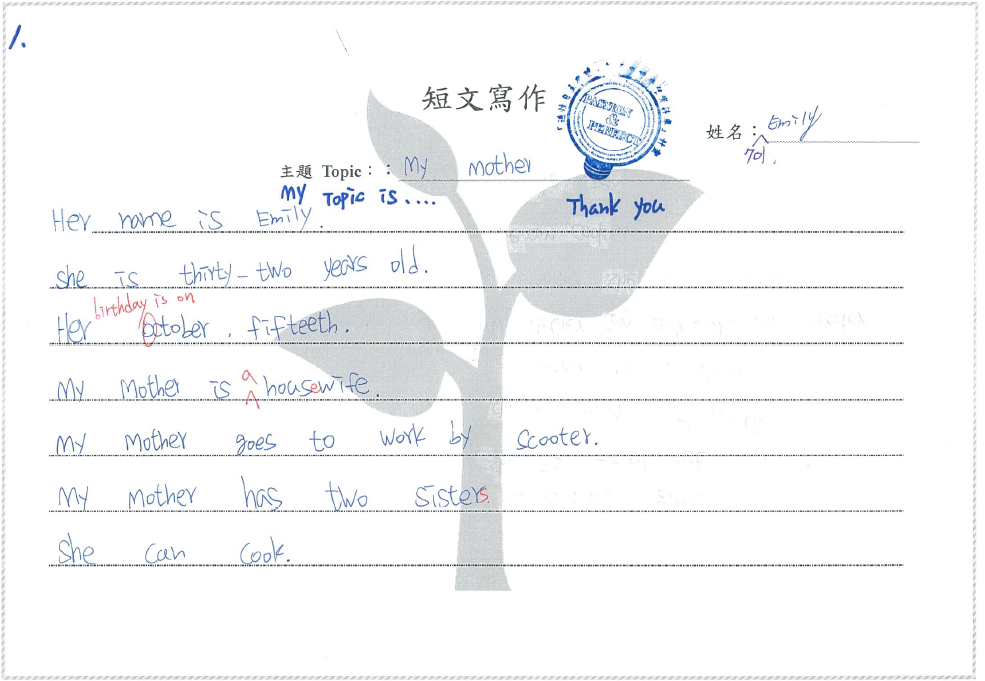 1.
短文寫作
PATERSON
&
PERFECT
姓名： Emily
701.
主題 Topic：： My mother
My Topic is....
Thank you
Her name is Emily.
She is thirty-two years old.
birthday is on
Her October. fifteeth.
a
My Mother is housewife.
My Mother goes to work by scooter.
My mother has two sisters.
She can cook.